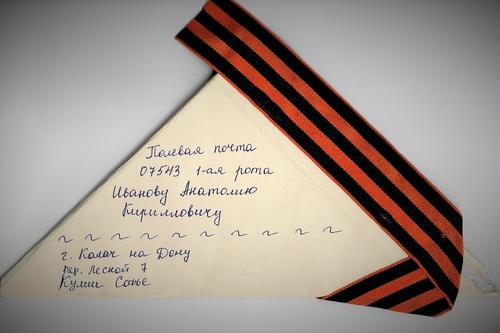 Полевая почта
07543 1-ая рота
Иванову Анатолию
Кирилловичу
г. Калач на Дону
пер. Лесной 7
Кулиш Сонье